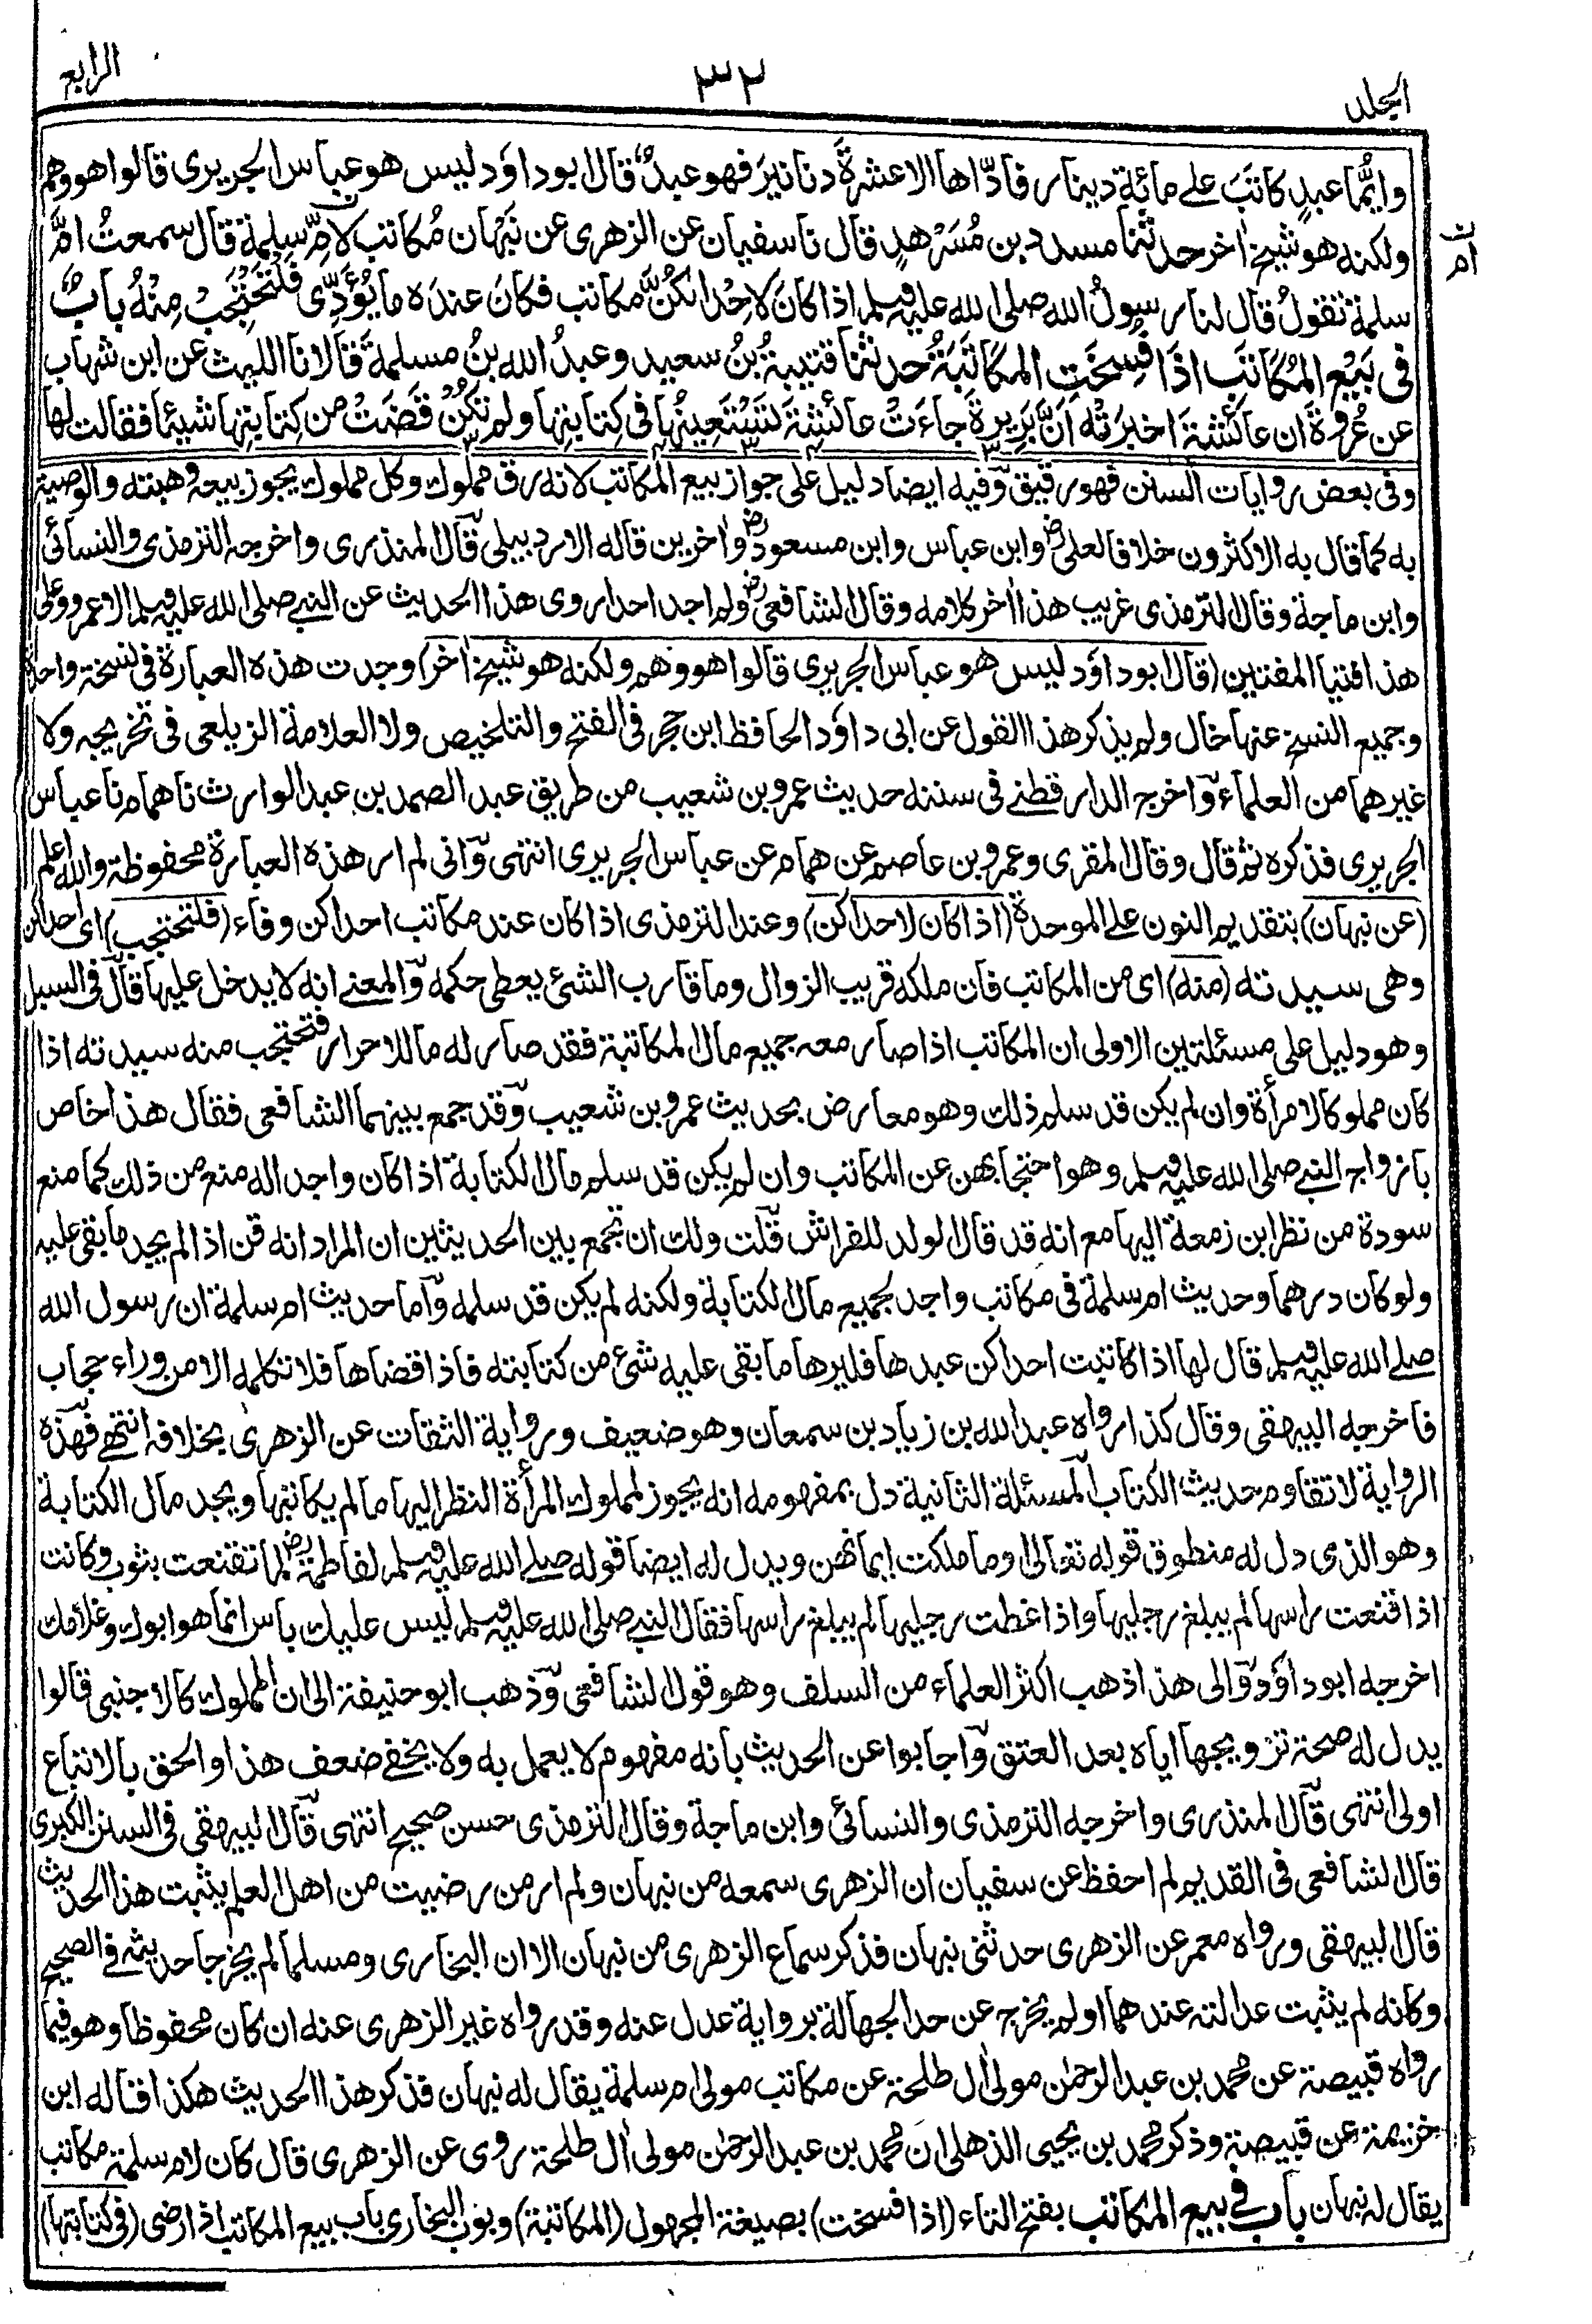 الجلد
٣٢
الرابع
وايُّما عبدٍ كاتبَ على مائةِ دينار فادّاها الا عشرةَ دنانيرَ فهو عبدٌ قال ابو داؤد ليس هو عباس الجريرى قالوا هو وهم
ولكنه هو شيخ اٰخر حدثنا مسدد بن مُسَرْهدٍ قال نا سفيان عن الزهرى عن نَبْهَان مُكاتب لامّ سلمة قال سمعتُ امَّ
ن ام
سلمة تقولُ قال لنا رسولُ الله صلى الله عليه وسلم اذا كانَ لاِحْدٰىكُنَّ مكاتب فكانَ عندَه ما يُؤَدِّى فلْتَحْتَجِبْ مِنْهُ بابٌ
فى بَيْع المُكاتَب اذَا فُسِخَتِ المكاتَبَةُ حدثنا قتيبةُ بنُ سعيد وعبدُ الله بنُ مسلمةَ قالا نا الليث عن ابن شهاب
عن عُروةَ ان عائشةَ اخبرَتْه اَنَّ بَرِيرةَ جاءَتْ عائشةَ تَسْتَعِينُها فى كِتابتِها ولم تكُنْ قَضَتْ من كِتابتِها شيئا فقالت لها
وفى بعض روايات السنن فهو رقيق وفيه ايضا دليل على جواز بيع المكاتب لانه رق مملوك وكل مملوك يجوز بيعه وهبته والوصية
به كما قال به الاكثرون خلافا لعلى رض وابن عباس وابن مسعود رض واٰخرين قاله الاردبيلى قال المنذرى واخرجه الترمذى والنسائى
وابن ماجة وقال الترمذى غريب هذا اٰخر كلامه وقال الشافعى رض ولم اجد احدا روى هذا الحديث عن النبى صلى الله عليه وسلم الا عمرو وعلى
هذا فتيا المفتين (قال ابو داؤد ليس هو عباس الجريرى قالوا هو وهم ولكنه هو شيخ اٰخر) وجدت هذه العبارة فى نسخة واحدة
وجميع النسخ عنها خال ولم يذكر هذا القول عن ابى داؤد الحافظ ابن حجر فى الفتح والتلخيص ولا العلامة الزيلعى فى تخريجه ولا
غيرهما من العلماء واخرجه الدار قطنى فى سننه حديث عمرو بن شعيب من طريق عبد الصمد بن عبد الوارث نا همام نا عباس
الجريرى فذكره ثم قال وقال المقرى وعمرو بن عاصم عن همام عن عباس الجريرى انتهى وانى لم ار هذه العبارة محفوظة والله اعلم
(عن نبهان) بتقديم النون على الموحدة (اذا كان لاحداكن) وعند الترمذى اذا كان عند مكاتب احداكن وفاء (فلتحتجب) اى احداكن
وهى سيدته (منه) اى من المكاتب فان ملكه قريب الزوال وما قارب الشئ يعطى حكمه والمعنى انه لا يدخل عليها قال فى السبل
وهو دليل على مسئلتين الاولى ان المكاتب اذا صار معه جميع مال المكاتبة فقد صار له ما للاحرار فتحتجب منه سيدته اذا
كان مملوكا لامرأة وان لم يكن قد سلم ذلك وهو معارض بحديث عمرو بن شعيب وقد جمع بينهما الشافعى فقال هذا خاص
بازواج النبى صلى الله عليه وسلم وهو احتجابهن عن المكاتب وان لم يكن قد سلم مال الكتابة اذا كان واجدا له منع من ذلك كما منع
سودة من نظر ابن زمعة اليها مع انه قد قال الولد للفراش قلت ولك ان تجمع بين الحديثين ان المراد انه قن اذا لم يجد ما بقى عليه
ولو كان درهما وحديث ام سلمة فى مكاتب واجد لجميع مال الكتابة ولكنه لم يكن قد سلمه واما حديث ام سلمة ان رسول الله
صلى الله عليه وسلم قال لها اذا كاتبت احداكن عبدها فليرها ما بقى عليه شئ من كتابته فاذا قضاها فلا تكلمه الا من وراء حجاب
فاخرجه البيهقى وقال كذا رواه عبد الله بن زياد بن سمعان وهو ضعيف ورواية الثقات عن الزهرى بخلافه انتهى فهذه
الرواية لا تقاوم حديث الكتاب المسئلة الثانية دل بمفهومه انه يجوز لمملوك المرأة النظر اليها ما لم يكاتبها ويجد مال الكتابة
وهو الذى دل له منطوق قوله تعالى او ما ملكت ايمانهن ويدل له ايضا قوله صلى الله عليه وسلم لفاطمة رض لما تقنعت بثوب وكانت
اذا قنعت راسها لم يبلغ رجليها واذا غطت رجليها لم يبلغ راسها فقال النبى صلى الله عليه وسلم ليس عليك باس انما هو ابوك وغلامك
اخرجه ابو داؤد والى هذا ذهب اكثر العلماء من السلف وهو قول الشافعى وذهب ابو حنيفة الى ان المملوك كالاجنبى قالوا
يدل له صحة تزويجها اياه بعد العتق واجابوا عن الحديث بانه مفهوم لا يعمل به ولا يخفى ضعف هذا والحق بالاتباع
اولى انتهى قال المنذرى واخرجه الترمذى والنسائى وابن ماجة وقال الترمذى حسن صحيح انتهى قال البيهقى فى السنن الكبرى
قال الشافعى فى القديم لم احفظ عن سفيان ان الزهرى سمعه من نبهان ولم ار من رضيت من اهل العلم يثبت هذا الحديث
قال البيهقى ورواه معمر عن الزهرى حدثنى نبهان فذكر سماع الزهرى من نبهان الا ان البخارى ومسلما لم يخرجا حديثه فى الصحيح
وكانه لم يثبت عدالته عندهما او لم يخرج عن حد الجهالة برواية عدل عنه وقد رواه غير الزهرى عنه ان كان محفوظا وهو فيما
رواه قبيصة عن محمد بن عبد الرحمٰن مولى اٰل طلحة عن مكاتب مولى ام سلمة يقال له نبهان فذكر هذا الحديث هكذا قاله ابن
خزيمة عن قبيصة وذكر محمد بن يحيى الذهلى ان محمد بن عبد الرحمٰن مولى اٰل طلحة روى عن الزهرى قال كان لام سلمة مكاتب
يقال له نبهان باب فى بيع المكاتب بفتح التاء (اذا فسخت) بصيغة المجهول (المكاتبة) وبوب البخارى باب بيع المكاتب اذا رضى (فى كتابتها)